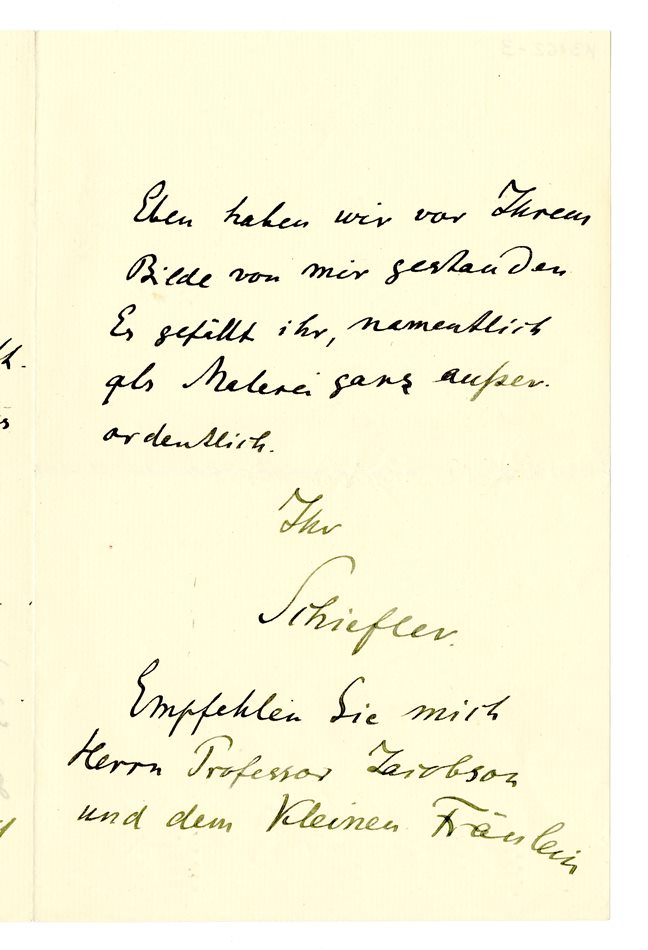 Eben haben wir vor Ihrem
Bilde von mir gestanden
Es gefällt ihr, namentlich
als Malerei ganz außer.
ordentlich.
Ihr
Schiefler.
Empfehlen Sie mich
Herrn Professor Jacobson
und dem kleinen Fräulein